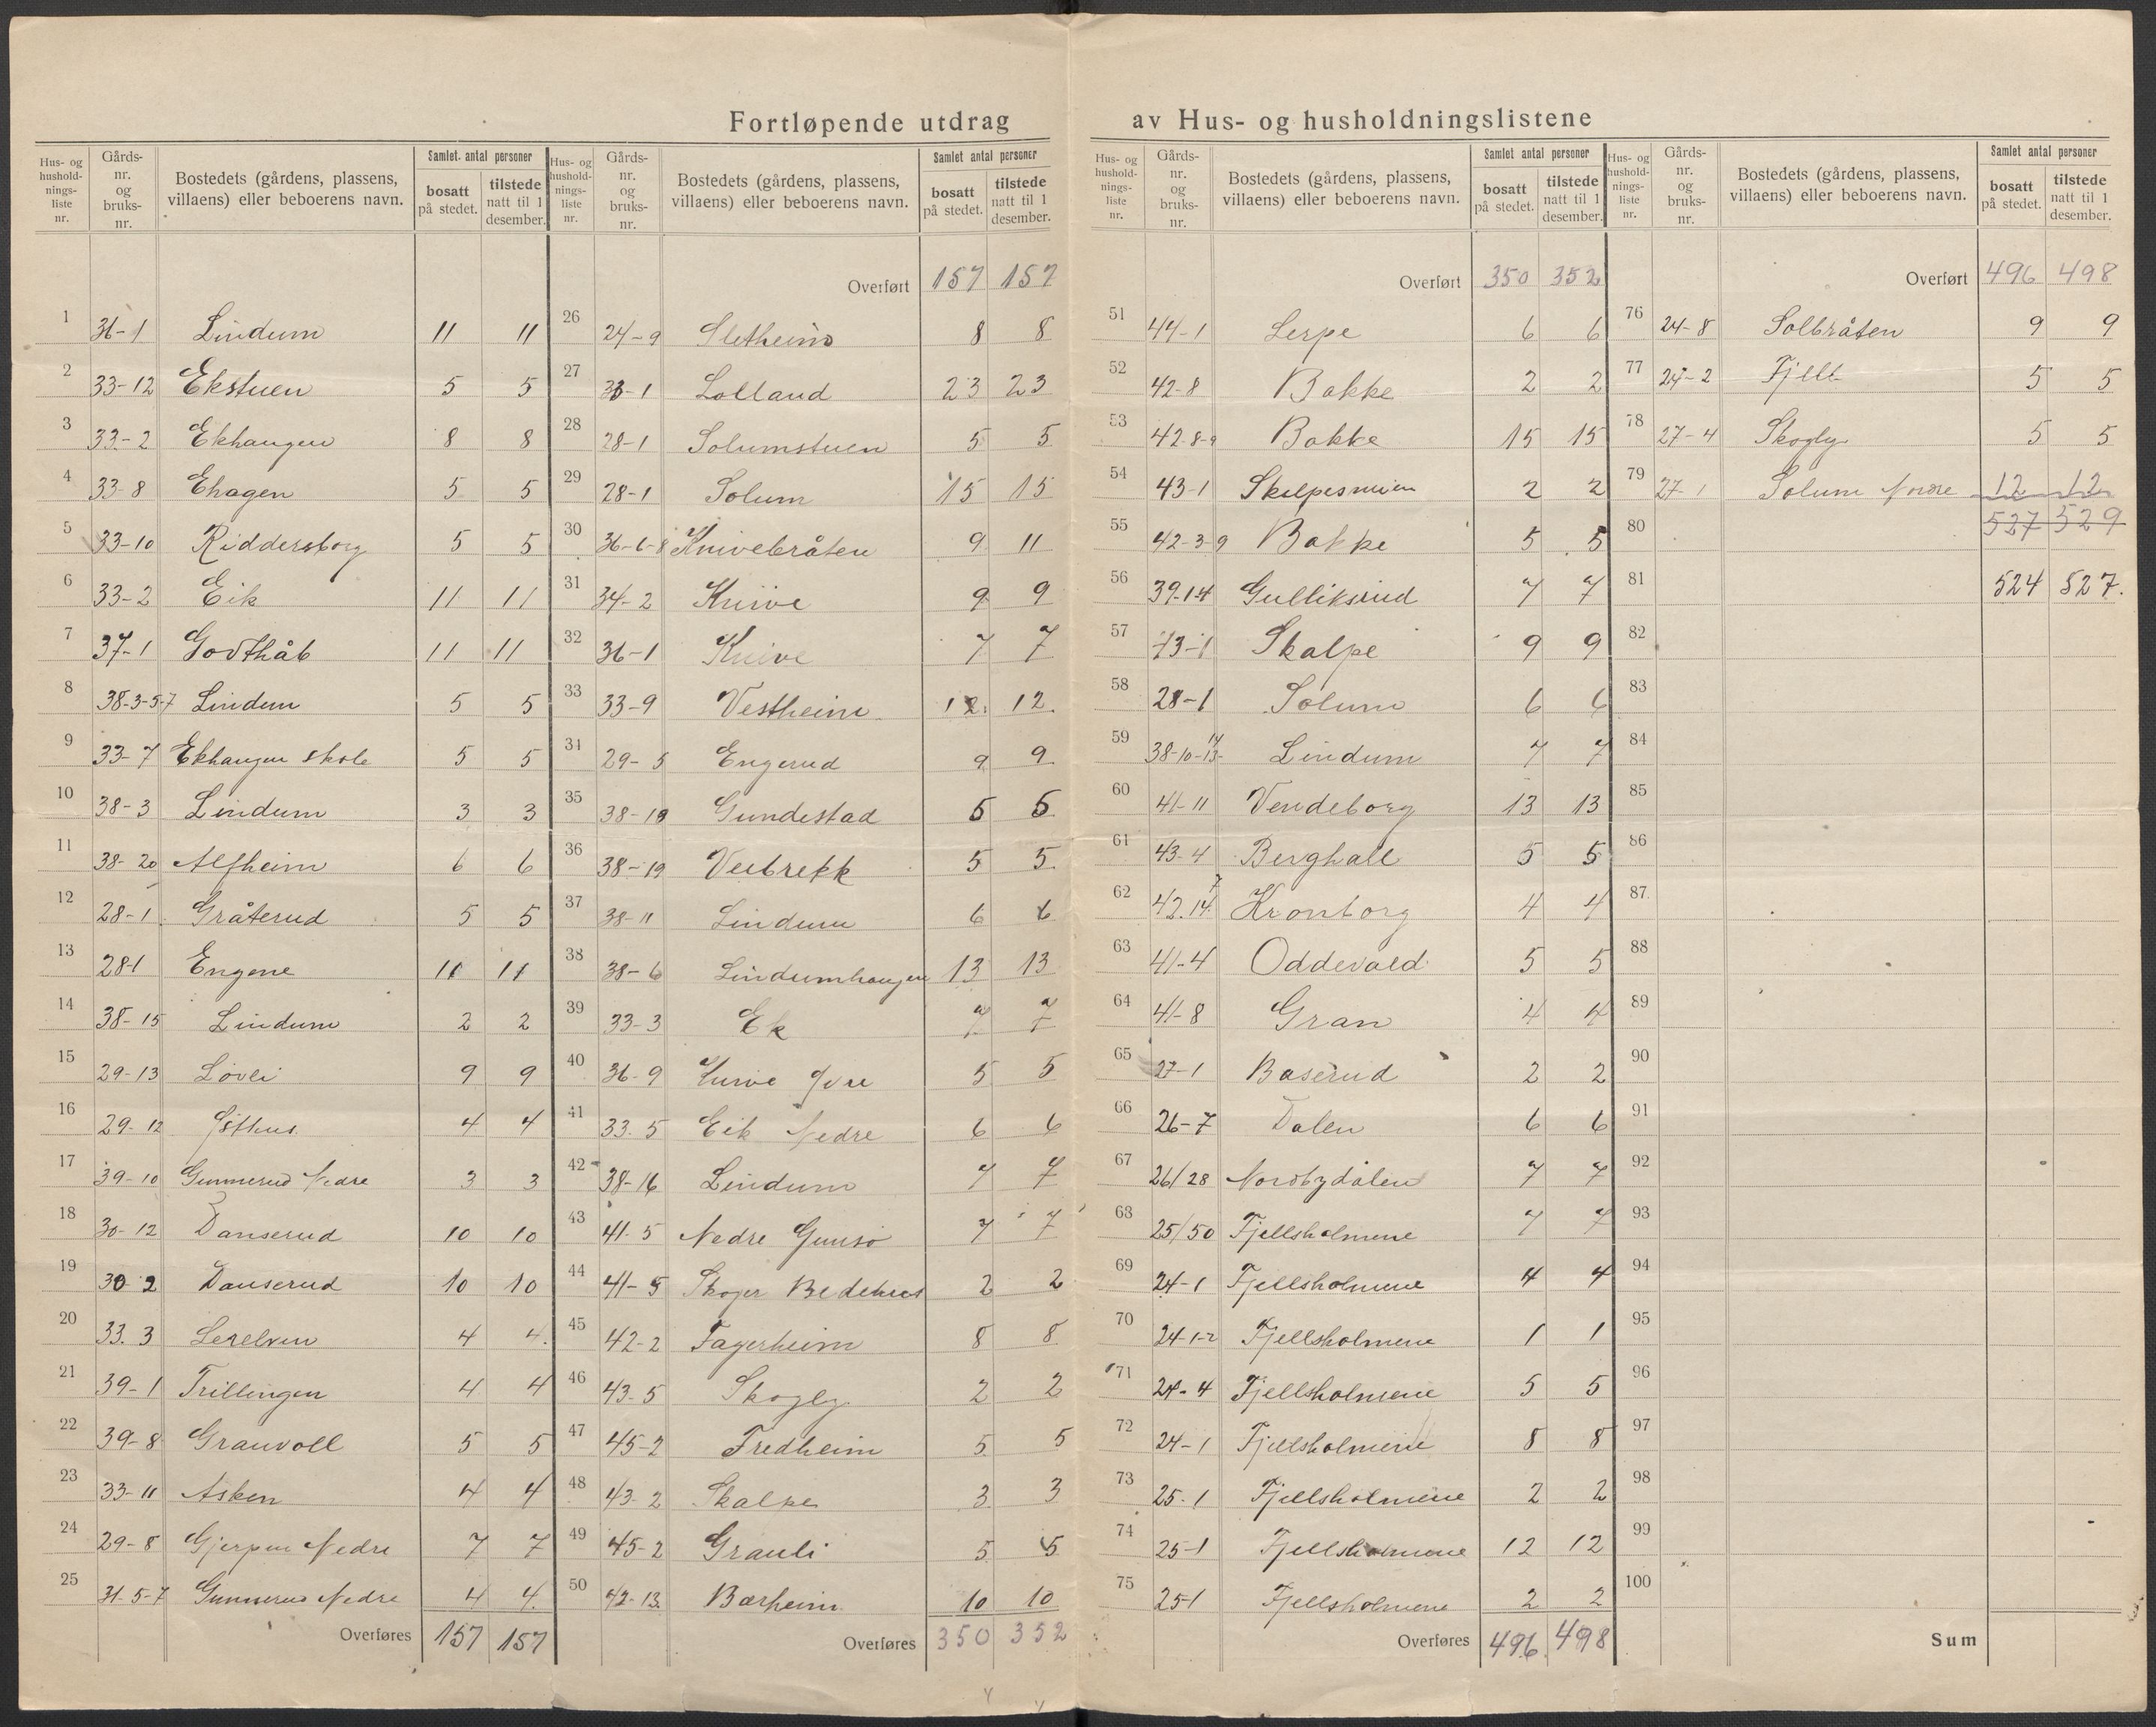 Fortløpende utdrag av Hus- og husholdningslistene
Hus- og husholdnings- liste nr. Gårds- nr. og bruks- nr. Bostedets (gårdens, plassens, villaens) eller beboerens navn. Samlet antal personer bosatt på stedet. tilstede natt til 1 desember.
1 36-1 Lindum 11 11
2 33-12 Ekstuen 5 5
3 33-2 Ekhaugen 8 8
4 33-8 Ehagen 5 5
5 33-10 Riddersborg 5 5
6 33-2 Eik 11 11
7 37-1 Godthåb 11 11
8 38-3-5-7 Lindum 5 5
9 33-7 Ekhaugen skole 5 5
10 38-3 Lindum 3 3
11 38-20 Alfheim 6 6
12 28-1 Gråterud 5 5
13 28-1 Engene 11 11
14 38-15 Lindum 2 2
15 29-13 Løvli 9 9
16 29-12 4 4
17 39-10 Gunnerud Nedre 3 3
18 30-12 Danserud 10 10
19 30 2 Danserud 10 10
20 33.3 Lerelven 4 4
21 39-1 Trillingen 4 4
22 39-8 Granvoll 5 5
23 33-11 Asken 4 4
24 29-8 Gjerpen Nedre 7 7
25 31-5-7 Gunnerud Nedre 4 4
Overføres 157 157
Overført 157 157
26 24-9 Sletheim 8 8
27 33-1 Lolland 23 23
28 28-1 Solumstuen 5 5
29 28-1 Solum 15 15
30 36-6-8 Knivebråten 9 11
31 34-2 Knive 9 9
32 36-1 Knive 7 7
33 33-9 Vestheim 12 12
34 29-5 Engerud 9 9
35 38-18 Gundestad 5 5
36 38-19 Veibrekk 5 5
37 38-11 Lindum 6 6
38 38-6 Lindumhaugen 13 13
39 33-3 Ek 7 7
40 36-9 Knive Øvre 5 5
41 33.5 Eik Nedre 6 6
42 38-16 Lindum 7 7
43 41.5 Nedre Gunsø 7 7
44 41-5 Skoger Bedehus 2 2
45 42-2 Fagerheim 8 8
46 43-5 Skogly 2 2
47 45-2 Fredheim 5 5
48 43-2 Skalpe 3 3
49 45-2 Granli 5 5
50 42-13 Bærheim 10 10
Overføres 350 352
Overført 350 352
51 44-1 Lerpe 6 6
52 42-8 Bakke 2 2
53 42-8-9 Bakke 15 15
54 43-1 2 2
55 42-3-9 Bakke 5 5
56 39-14 Gulliksrud 7 7
57 43-1 Skalpe 9 9
58 28-1 Solum 6 6
59 38-10-13-14 Lindum 7 7
60 41-11 Vendeborg 13 13
61 43-4 Berghall 5 5
62 42.14 7 Kronborg 4 4
63 41-4 Oddevald 5 5
64 41-8 Gran 4 4
65 27-1 Baserud 2 2
66 26-7 Dalen 6 6
67 26/28 Nordbydalen 7 7
68 25/50 Fjellsholmene 7 7
69 24-1 Fjellsholmene 4 4
70 24-1-2 Fjellsholmene 1 1
71 24-4 Fjellsholmene 5 5
72 24-1 Fjellsholmene 8 8
73 25-1 Fjellsholmene 2 2
74 25-1 Fjellsholmene 12 12
75 25-1 Fjellsholmene 2 2
Overføres 496 498
Overført 496 498
76 24-8 Solbråten 9 9
77 24-2 Fjell 5 5
78 27-4 Skogly 5 5
79 27-1 Solum Nordre 12 12
80 527 529
81 524 527.
82
83
84
85
86
87
88
89
90
91
92
93
94
95
96
97
98
99
100
Sum